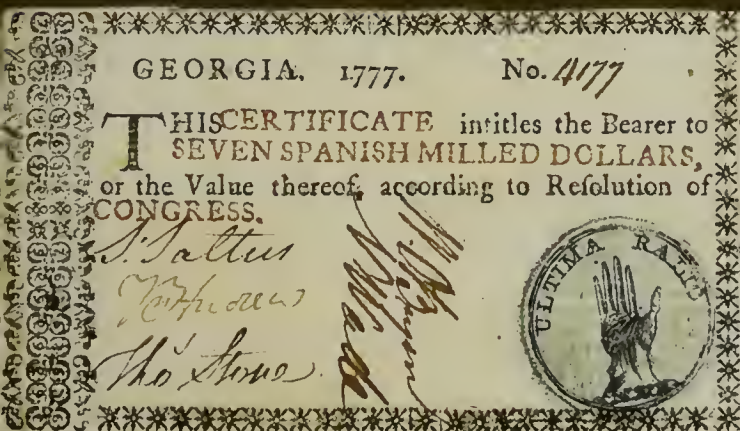 GEORGIA. 1777. No. 4177
THIS CERTIFICATE intitles the Bearer to
SEVEN SPANISH MILLED DOLLARS,
or the Value thereof, according to Reſolution of
CONGRESS.
S. Saltus
Tho Stone
N Wade
ULTIMA RATIO